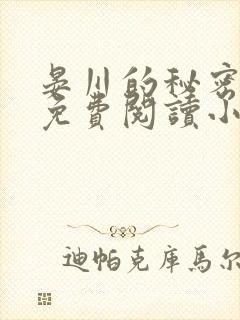 晏川的秘密
免費閱讀小
迪帕克庫馬尔